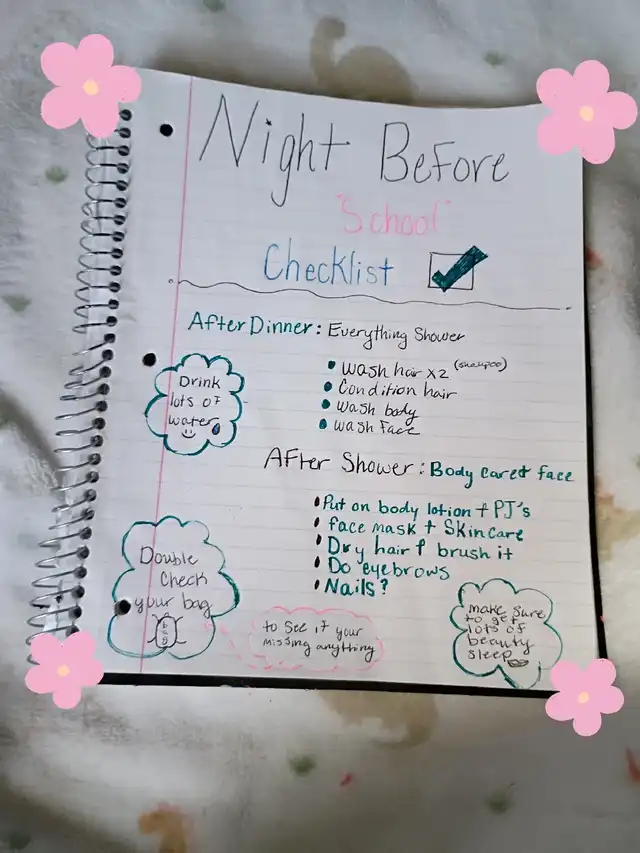 Night Before
"School"
Checklist
After Dinner: Everything Shower
• Wash hair x2 (shampoo)
• Condition hair
• Wash body
• Wash Face
Drink
lots of
water
After Shower: Body care + face
• Put on body lotion + PJ's
• face mask + Skincare
• Dry hair + brush it
• Do eyebrows
• Nails?
Double
Check
your bag
to see if your
missing anything
make sure
to get
lots of
beauty
sleep